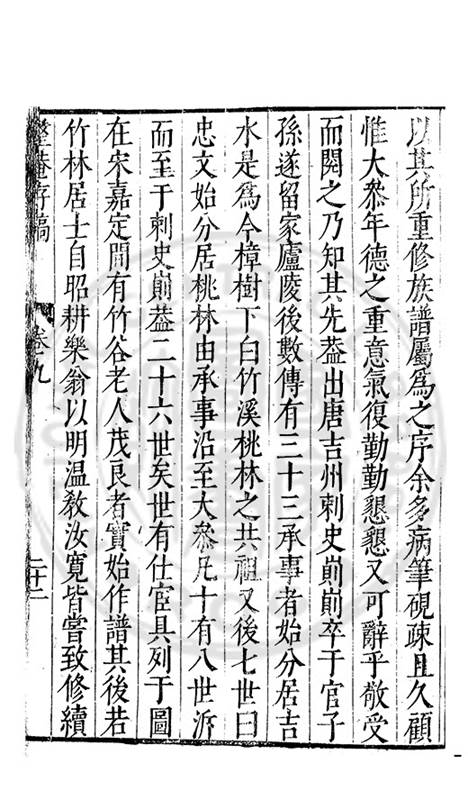 以其所重修族譜屬爲之序余多病筆硯疎且久顧
惟大叅年德之重意氣復勤勤懇懇又可辭乎敬受
而閱之乃知其先葢出唐吉州刺史崱崱卒于官子
孫遂留家廬陵後數傳有三十三承事者始分居吉
水是爲今樟樹下白竹溪桃林之共祖又後七世曰
忠文始分居桃林由承事沿至大叅凡十有八世泝
而至于刺史崱葢二十六世矣世有仕宦具列于圖
在宋嘉定間有竹谷老人茂良者實始作譜其後若
竹林居士自昭耕樂翁以明温敎汝寛皆嘗致修續
整菴存稿
卷九
二十二